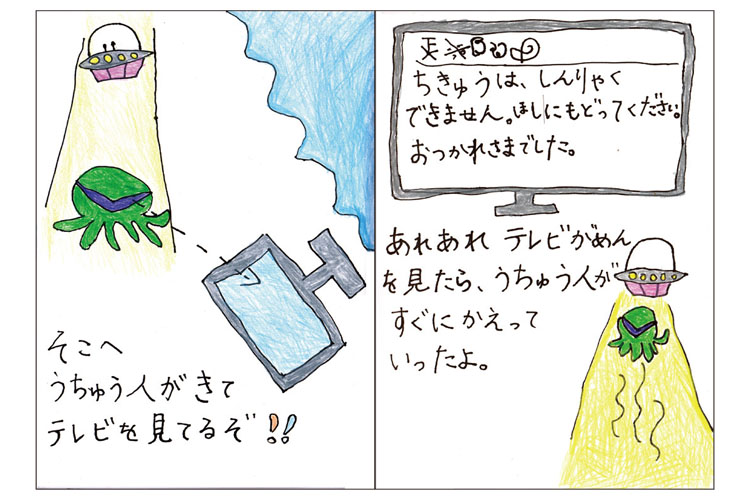 そこへ
うちゅう人がきて
テレビを見てるぞ!!
ちきゅうは、しんりゃく
できません。ほしにもどってください。
おつかれさまでした。
あれあれ テレビがめん
を見たら、うちゅう人が
すぐにかえって
いったよ。